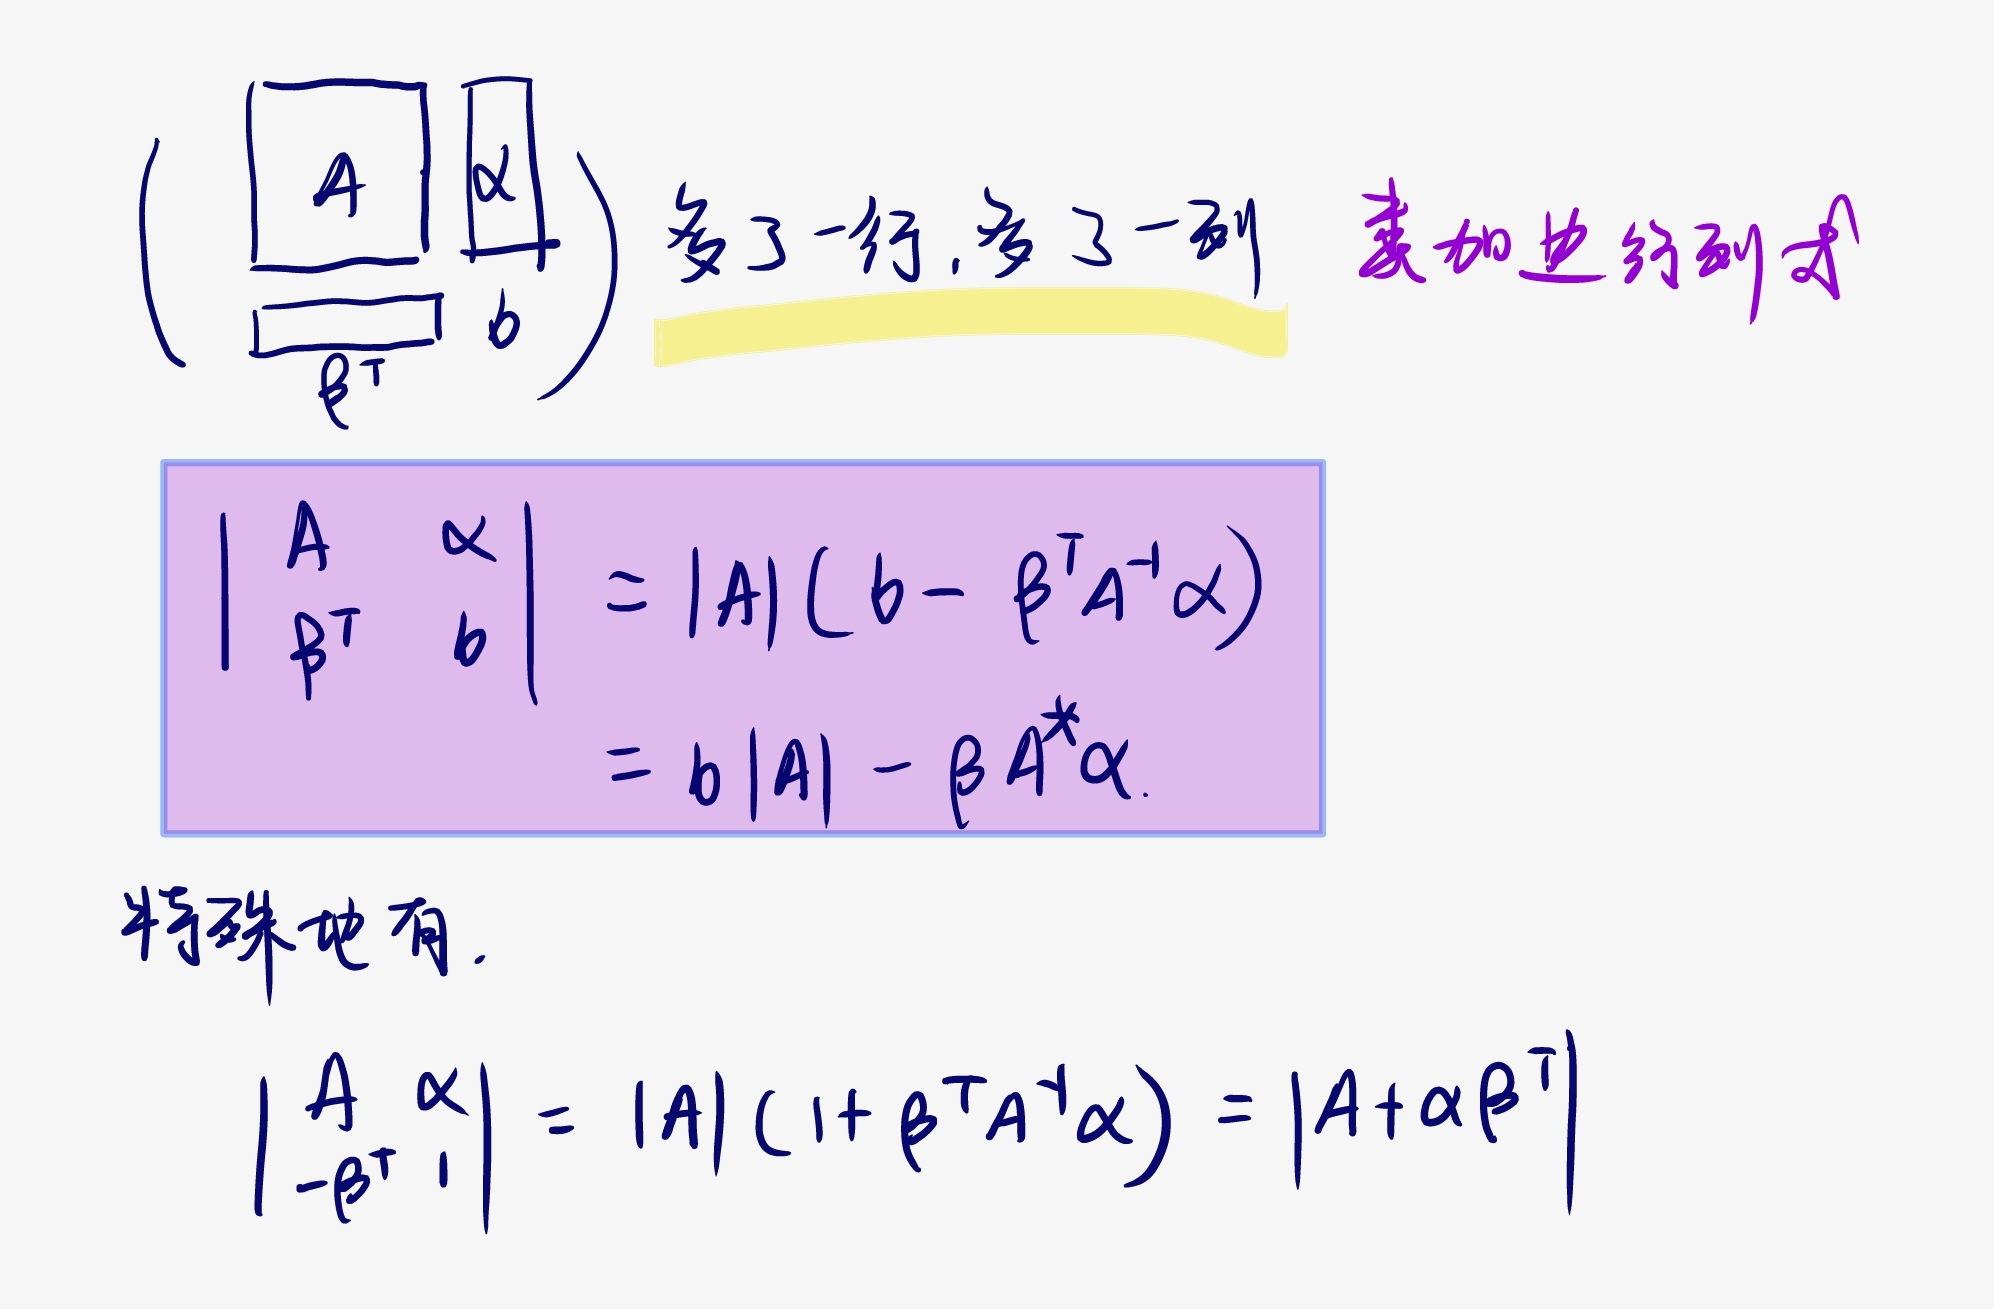 A α
β^T b
多了一行,多了一列 类加边行列式
| A α |
| β^T b | = |A|(b - β^T A^{-1} α)
= b|A| - β A^* α.
特殊地有.
| A α |
| -β^T 1 | = |A|(1 + β^T A^{-1} α) = |A + αβ^T|